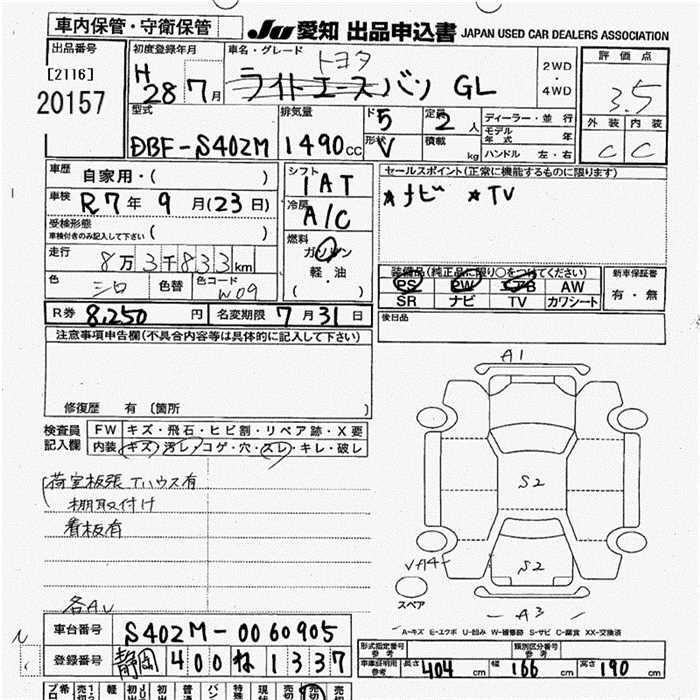 車内保管・守衛保管
JU 愛知 出品申込書 JAPAN USED CAR DEALERS ASSOCIATION
出品番号
[2116]
20157
初度登録年月
H 28 7月
車名・グレード
トヨタ
ライトエースバン GL
2WD
・
4WD
評価点
3.5
外装 内装
C C
型式
DBF-S402M
排気量
1490cc
ドア 5
形状 V
定員 2人
積載 kg
ディーラー・並行
モデル年式 年
ハンドル 左・右
車歴
自家用・( )
車検
R7年9月(23日)
受検形態
車検付きのみ記入して下さい ( )
走行
8万3千833km
色 シロ 色替 色コード W09
シフト
IAT
冷房
A/C
燃料
ガソリン
軽・油
( )
セールスポイント(正常に機能するものに限ります)
★ナビ ★TV
装備品(純正品に限り○をつけてください)
PS PW エアB AW
SR ナビ TV カワシート
新車保証書
有・無
後日品
R券 8,250円 名変期限 7月31日
注意事項申告欄(不具合内容等は具体的に記入して下さい)
修復歴 有 〔箇所 〕
検査員記入欄
FW キズ・飛石・ヒビ割・リペア跡・X要
内装 キズ・汚レ・コゲ・穴・スレ・キレ・破レ
荷室板張Tハウス有
棚取付け
看板有
各AU
A1
S2
S2
A3
スペア
A-キズ E-エクボ U-凹み W-補修跡 S-サビ C-腐食 XX-交換済
車台番号 S402M-0060905
登録番号 静岡 400 ね 1337
形式指定番号 類別区分番号
車庫証明用参考 長さ 404cm 幅 166cm 高さ 190cm